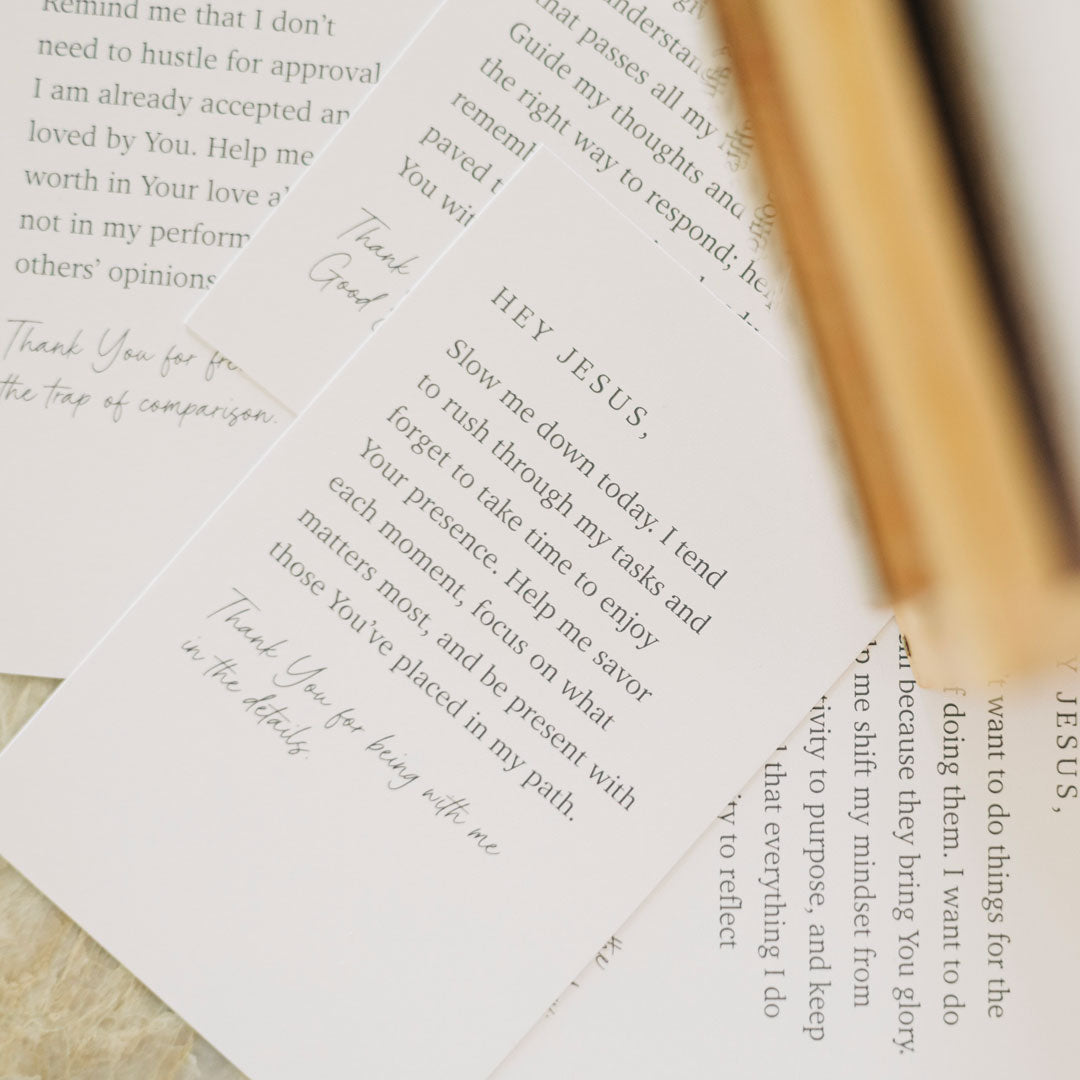 Remind me that I don't
need to hustle for approval
I am already accepted
loved by You. Help me
worth in Your love
not in my
others' opinions
Thank You for
the trap of comparison.
that passes all my
Guide my thoughts and
the right way to respond;
paved
You
Thank
Good
HEY JESUS,
Slow me down today. I tend
to rush through my tasks and
forget to take time to enjoy
Your presence. Help me savor
each moment, focus on what
matters most, and be present with
those You've placed in my path.
Thank You for being with me
in the details.
JESUS,
want to do things for the
doing them. I want to do
because they bring You glory.
me shift my mindset from
to purpose, and keep
that everything I do
to reflect